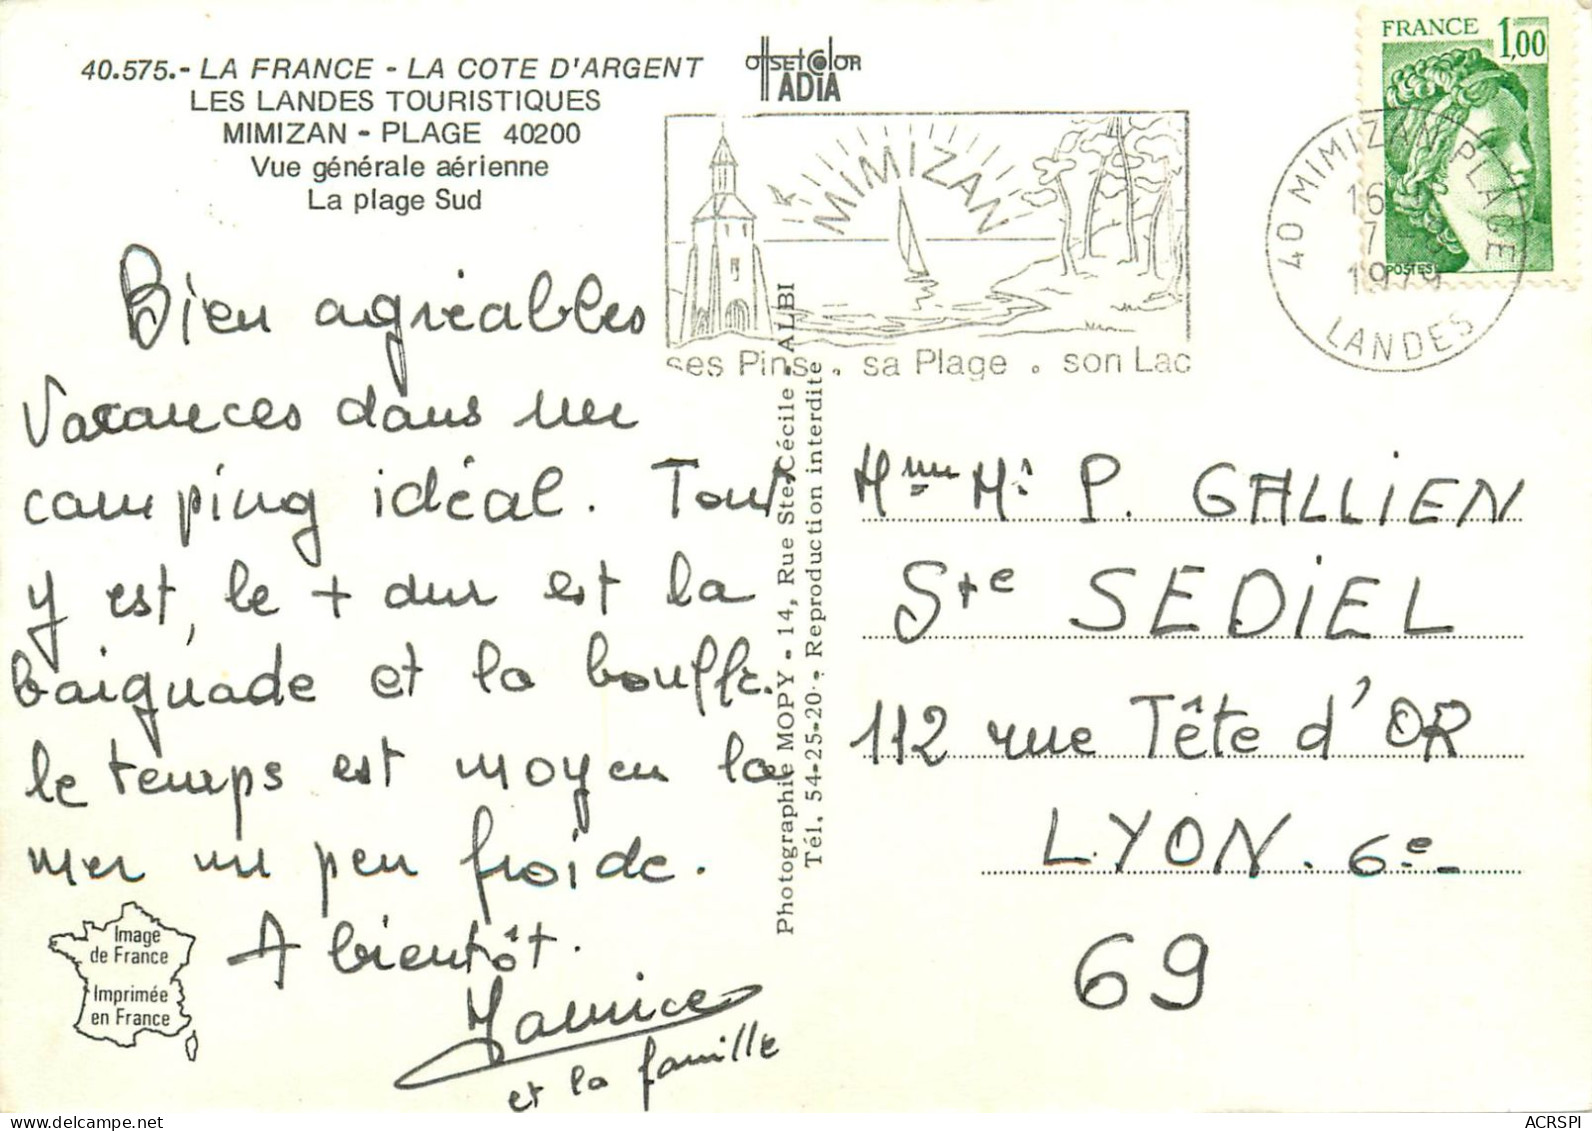 40.575.- LA FRANCE - LA COTE D'ARGENT
LES LANDES TOURISTIQUES
MIMIZAN - PLAGE 40200
Vue générale aérienne
La plage Sud
OffsetColor
IADIA
FRANCE 1,00
POSTES
MIMIZAN
ses Pins . sa Plage . son Lac
40 MIMIZAN PLAGE
16
7
1979
LANDES
Bien agréables
vacances dans un
camping idéal. Tout
y est, le + dur est la
baignade et la bouffe.
le temps est moyen la
mer un peu froide.
A bientôt.
et la famille
Image
de France
Imprimée
en France
Photographie MOPY - 14, Rue Ste-Cécile - ALBI
Tél. 54-25-20 - Reproduction interdite
Mme Mr P. GALLIEN
Ste SEDIEL
112 rue Tête d'OR
LYON. 6e
69
ACRSPI